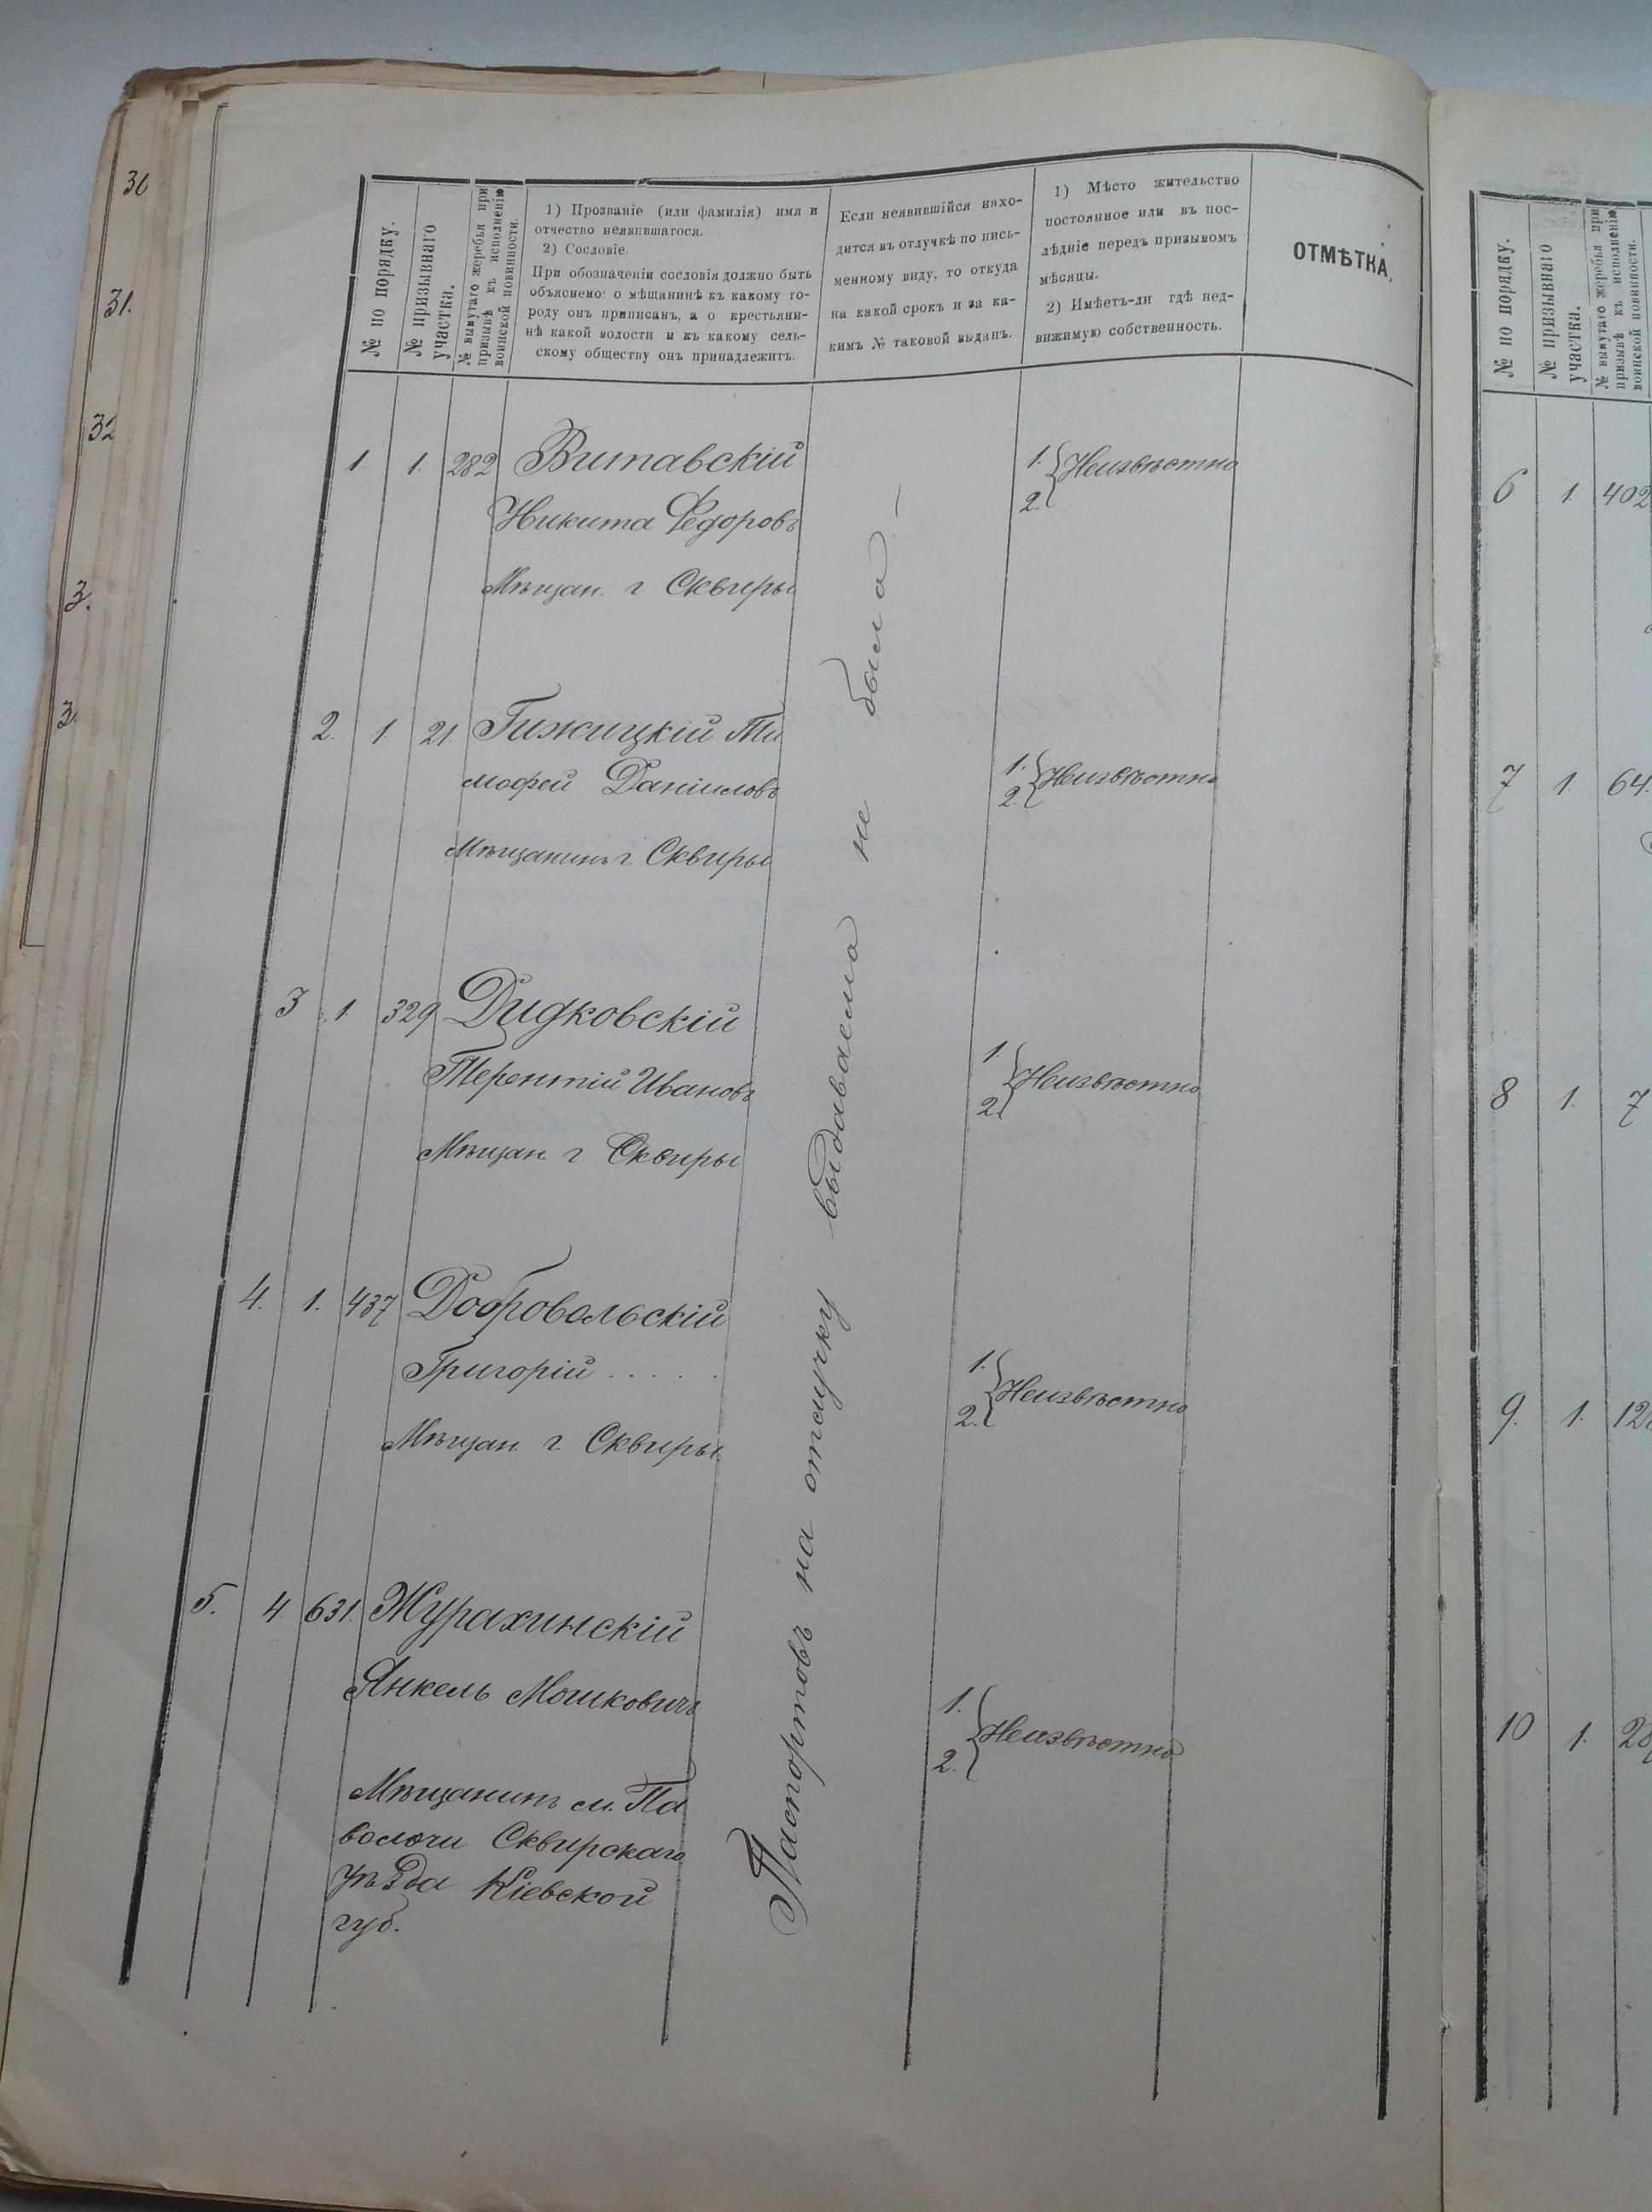 30
31.
32
3.
3.
№ по порядку.
№ призывнаго
участка.
№ вынутаго жеребья при
призывѣ къ исполненію
воинской повинности.
1) Прозваніе (или фамилія) имя и
отчество неявившагося.
2) Сословіе.
При обозначеніи сословія должно быть
объяснено: о мѣщанинѣ къ какому го-
роду онъ приписанъ, а о крестьяни-
нѣ какой волости и къ какому сель-
скому обществу онъ принадлежитъ.
Если неявившійся нахо-
дится въ отлучкѣ по пись-
менному виду, то откуда
на какой срокъ и за ка-
кимъ № таковой выданъ.
1) Мѣсто жительство
постоянное или въ пос-
лѣдніе передъ призывомъ
мѣсяцы.
2) Имѣетъ-ли гдѣ нед-
вижимую собственность.
ОТМѢТКА.
1 1. 282 Витавскій
Никита Федоровъ
Мѣщан. г Сквиры
1. 2. Неизвѣстно
2. 1 21. Гижицкій Ти
мофей Даніиловъ
Мѣщанинъ г. Сквиры
1. 2. Неизвѣстно
3 1. 329 Дидковскій
Терентій Ивановъ
Мѣщан г Сквиры
1. 2. Неизвѣстно
4. 1. 437 Добровольскій
Григорій . . . . .
Мѣщан г. Сквиры
1. 2. Неизвѣстно
5. 4 631. Журахинскій
Янкель Мошковичъ
Мѣщанинъ м. Па
волочи Сквирскаго
уѣзда Кіевской
губ.
1. 2. Неизвѣстно
Паспортовъ на отлучку выдаваемо не было —
№ по порядку.
№ призывнаго
участка.
№ вынутаго жеребья при
призывѣ къ исполненію
воинской повинности.
6 1. 402
7 1. 64.
8 1. 7
9. 1. 12
10 1. 28